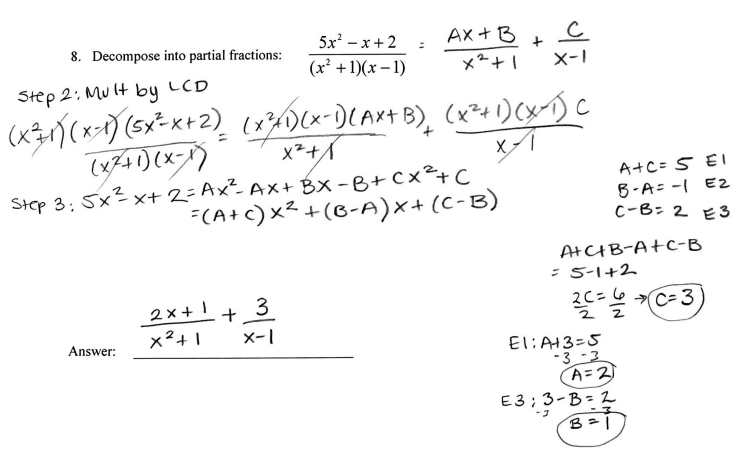 8. Decompose into partial fractions: (5x² − x + 2)/((x² + 1)(x − 1)) = (Ax + B)/(x² + 1) + C/(x-1)
Step 2: Mult by LCD
(x²+1)(x-1)(5x²-x+2)/((x²+1)(x-1)) = (x²+1)(x-1)(Ax+B)/(x²+1) + (x²+1)(x-1)C/(x-1)
Step 3: 5x²-x+2 = Ax²-Ax+Bx-B+Cx²+C
=(A+C)x²+(B-A)x+(C-B)
A+C=5 E1
B-A=-1 E2
C-B=2 E3
A+C+B-A+C-B
= 5-1+2
2C/2 = 6/2 → C=3
E1: A+3=5
-3 -3
A=2
E3: 3-B=2
-3 -3
B=1
Answer: (2x+1)/(x²+1) + 3/(x-1)